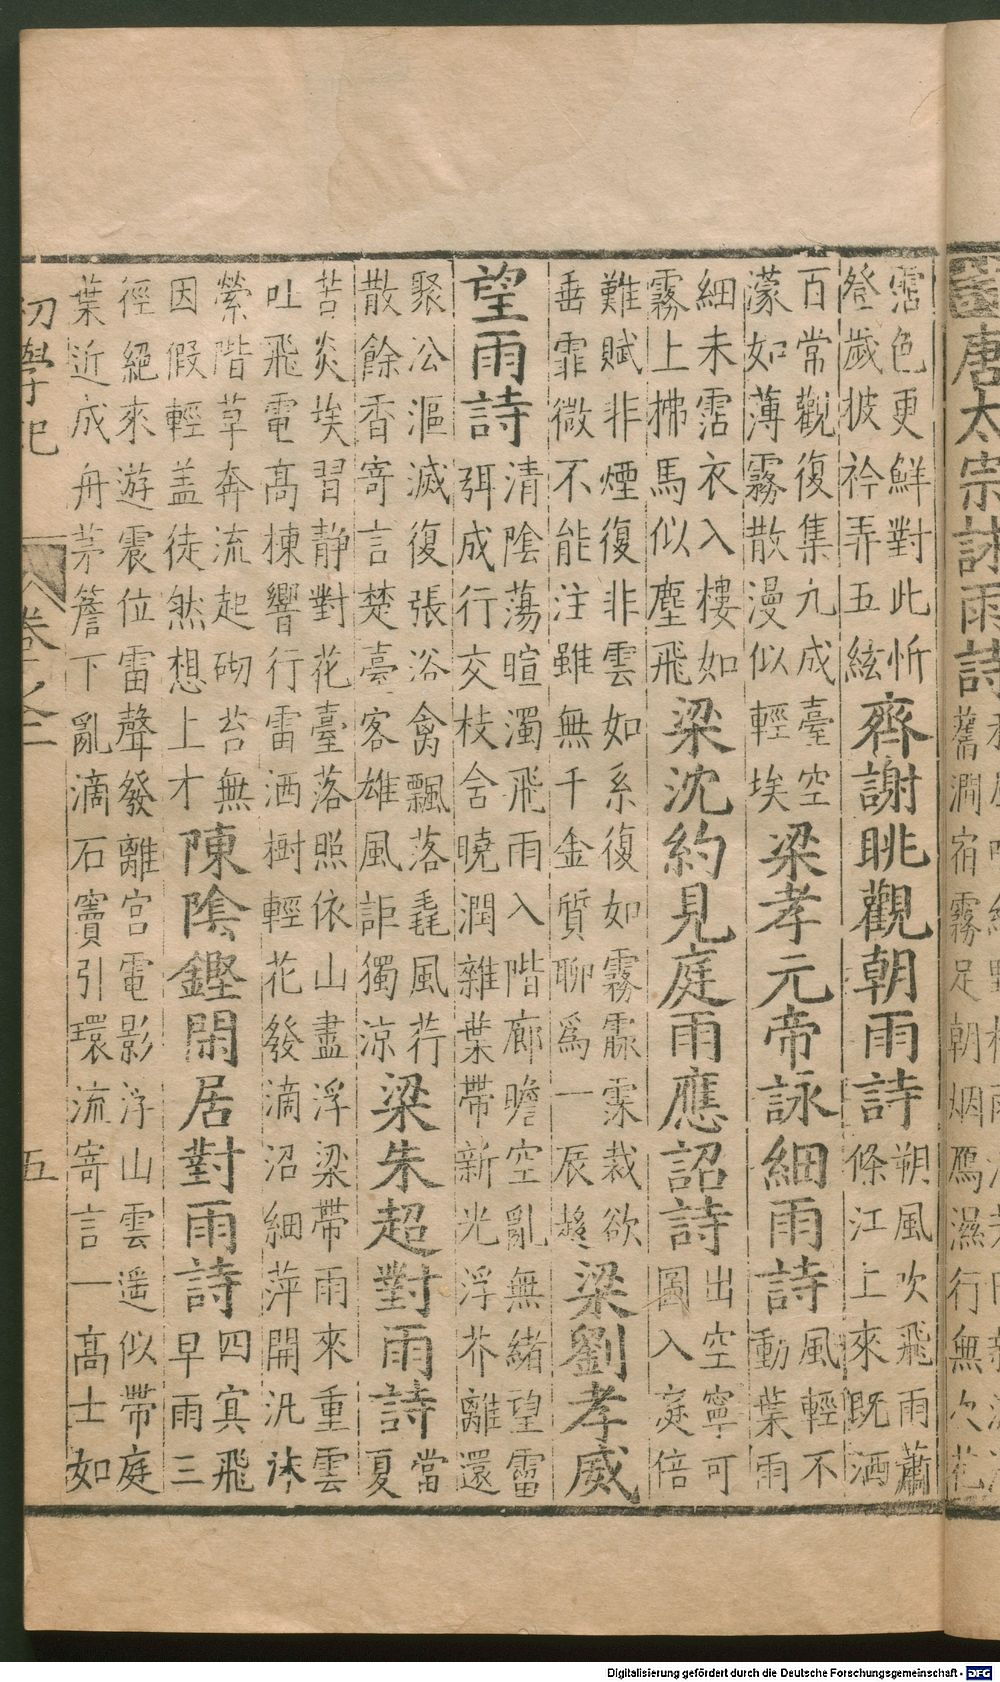 唐太宗詠雨詩
舊澗宿霧足朝烟鴈濕行無次花
霑色更鮮對此忻
登歲披衿弄五絃
齊謝眺觀朝雨詩
朔風吹飛雨蕭
條江上來既洒
百常觀復集九成臺空
濛如薄霧散漫似輕埃
梁孝元帝詠細雨詩
風輕不
動葉雨
細未霑衣入樓如
霧上拂馬似塵飛
梁沈約見庭雨應詔詩
出空寧可
圖入庭倍
難賦非煙復非雲如糸復如霧霢霂裁欲
垂霏微不能注雖無千金質聊爲一辰趍
梁劉孝威
望雨詩
清隂蕩暄濁飛雨入階廊瞻空亂無緒望霤
弭成行交枝舍曉潤雜葉帶新光浮芥離還
聚公漚滅復張浴禽飄落毳風荇
散餘香寄言楚臺客雄風詎獨涼
梁朱超對雨詩
當
夏
苦炎埃習静對花臺落照依山盡浮梁帶雨來重雲
吐飛電髙棟響行雷洒樹輕花發滴沼細萍開汎沫
縈階草奔流起砌苔無
因假輕盖徒然想上才
陳隂鏗閑居對雨詩
四寘飛
早雨三
徑絕來游震位雷聲發離宫電影浮山雲遥似帶庭
葉近成舟茅簷下亂滴石竇引環流寄言一髙士如
初學記
卷之二
五
Digitalisierung gefördert durch die Deutsche Forschungsgemeinschaft - DFG